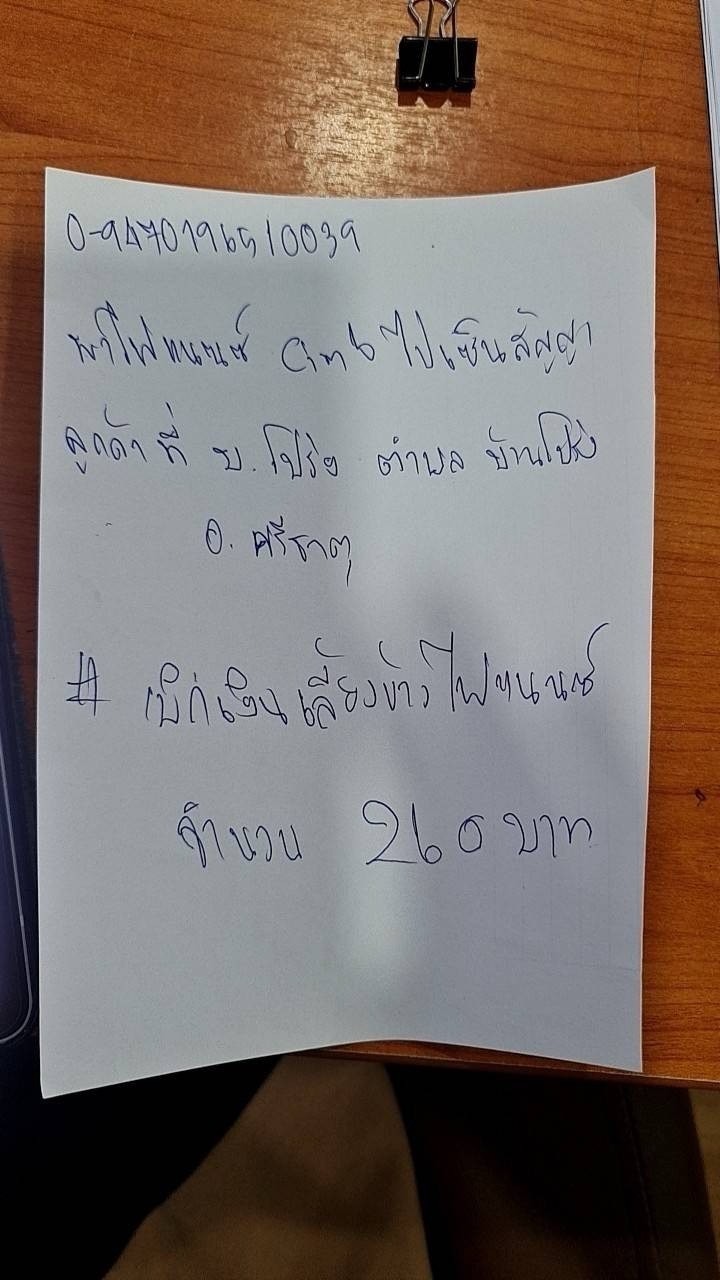 0-9470196510039
พาไฟแนนซ์ Cimb ไปเซ็นสัญญา
ลูกค้า ที่ บ. โปร่ง ตำบล บ้านโปร่ง
อ. ศรีธาตุ
# เบิกเงินเลี้ยงข้าวไฟแนนซ์
จำนวน 260 บาท